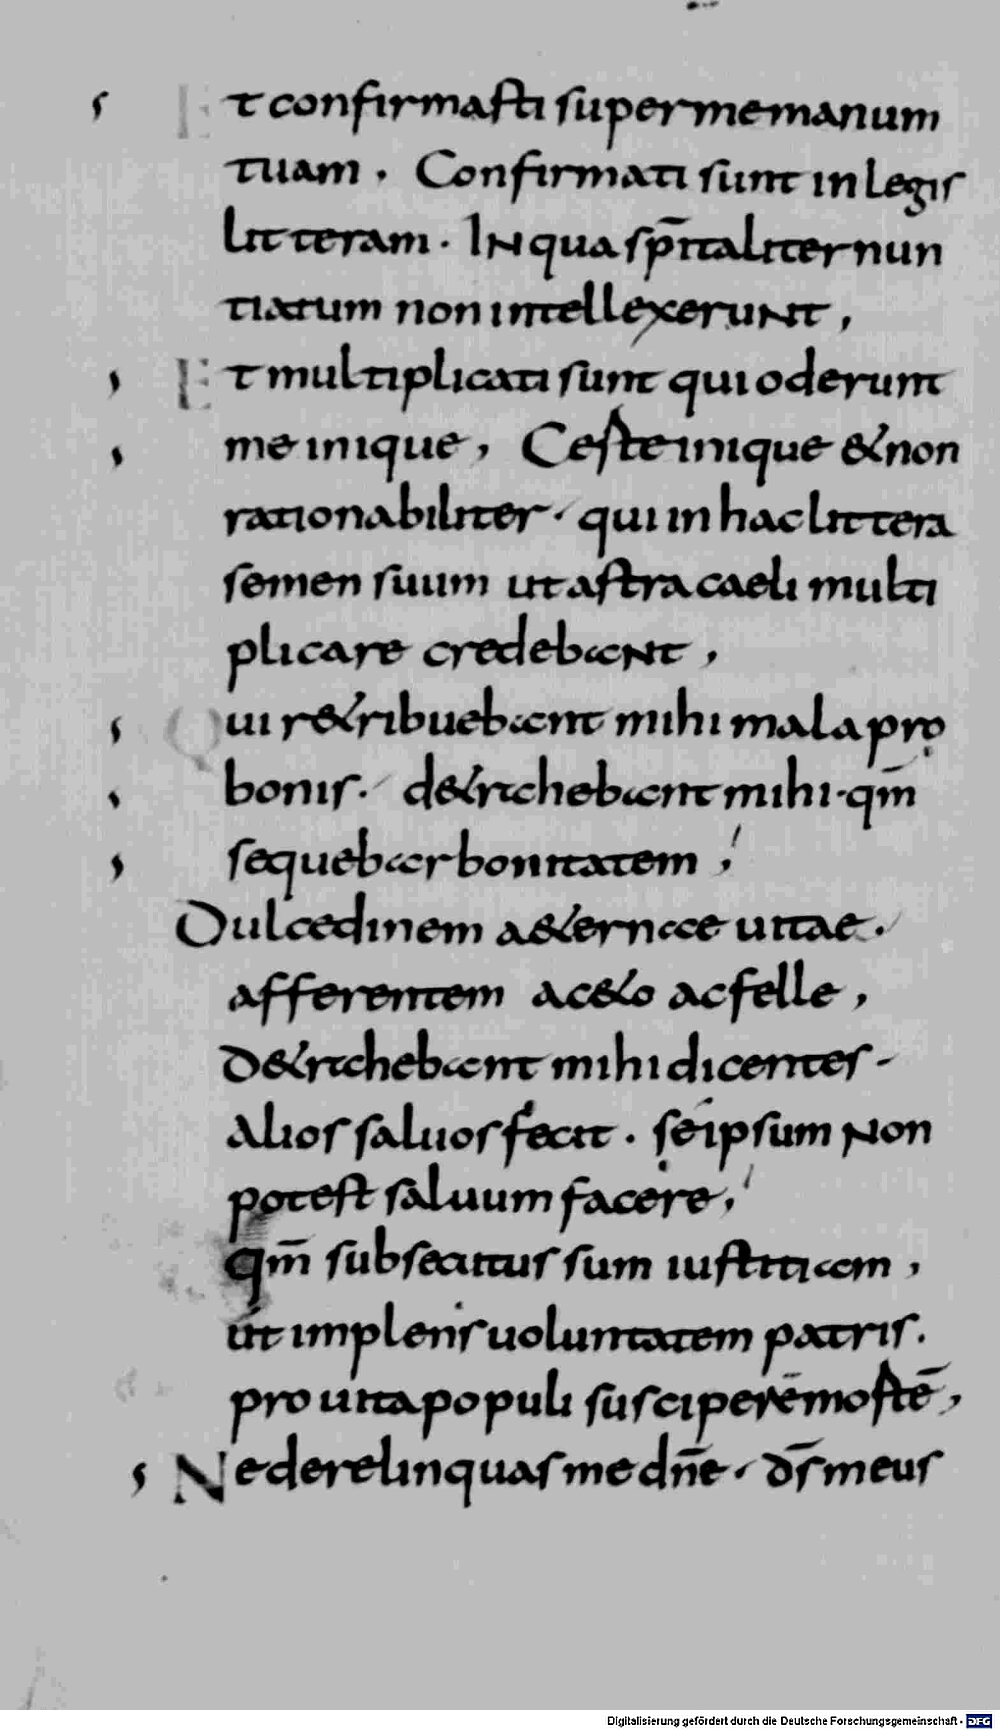 Et confirmasti super me manum
tuam . Confirmati sunt in legis
litteram . IN qua sp̄italiter nun
tiatum non intellexerunt ,
Et multiplicati sunt qui oderunt
me inique , Certe inique & non
rationabiliter . qui in hac littera
semen suum ut astra caeli multi
plicare credebant ,
Qui r&ribuebant mihi mala pro
bonis . d&rahebant mihi . qm̄
sequebar bonitatem ,
Dulcedinem a&ernae uitae .
afferentem ac&o ac felle ,
D&rahebant mihi dicentes .
Alios saluos fecit . se ipsum Non
potest saluum facere ,
qm̄ subsecutus sum iustitiam ,
ut implens uoluntatem patris .
pro uita populi susciperē mostē ,
Ne derelinquas me dn̄e . ds̄ meus
Digitalisierung gefördert durch die Deutsche Forschungsgemeinschaft - DFG